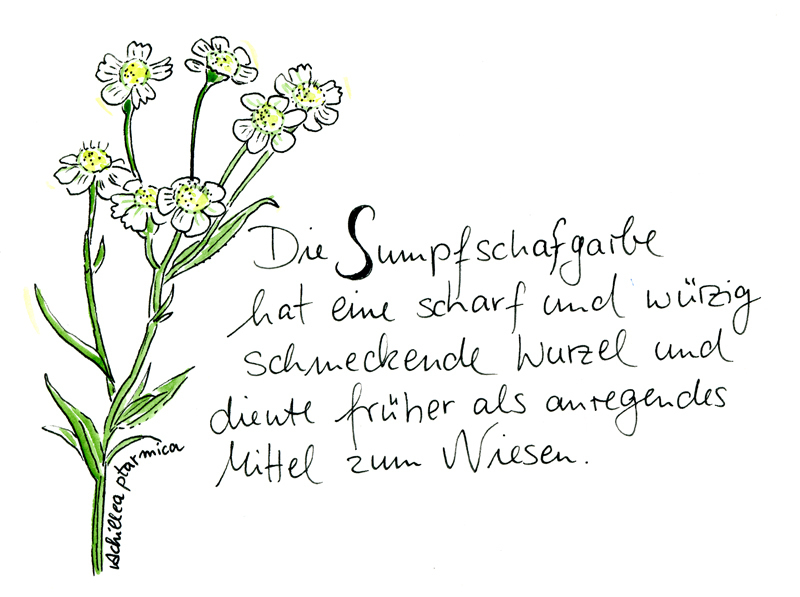 Die Sumpfschafgarbe
hat eine scharf und würzig
schmeckende Wurzel und
diente früher als anregendes
Mittel zum Niesen.
Achillea ptarmica